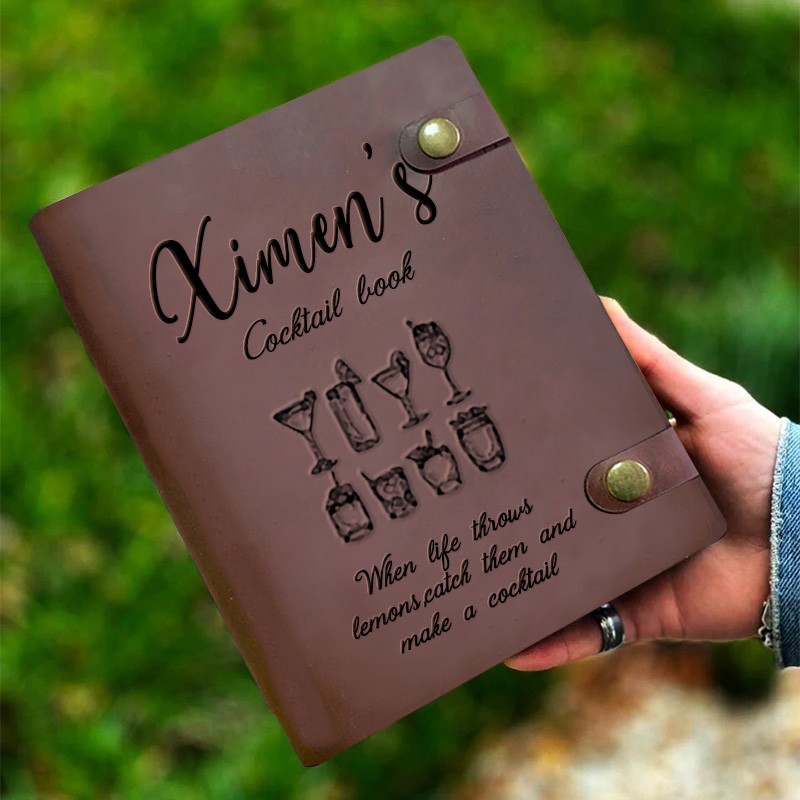 Ximen's
Cocktail book
When life throws
lemons,catch them and
make a cocktail